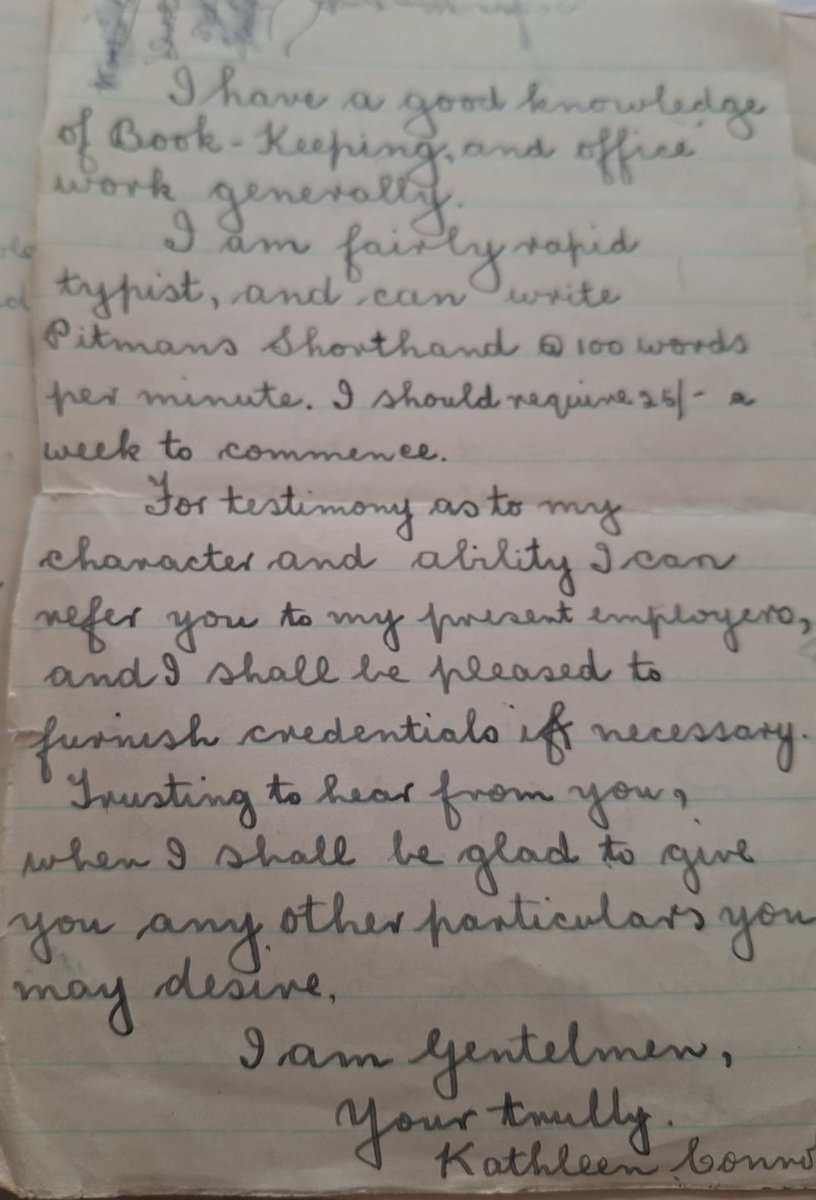 I have a good knowledge
of Book-Keeping, and office
work generally.
I am fairly rapid
typist, and can write
Pitmans Shorthand @ 100 words
per minute. I should require 25/- a
week to commence.
For testimony as to my
character and ability I can
refer you to my present employers,
and I shall be pleased to
furnish credentials if necessary.
Trusting to hear from you,
when I shall be glad to give
you any other particulars you
may desire,
I am Gentelmen,
Your trully.
Kathleen